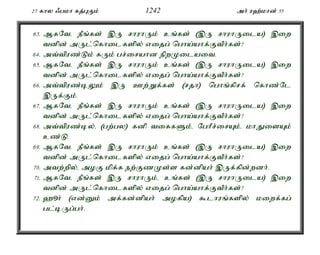 27 காலஃபமா கத்புகும் 1242 அர் ரஹ்மான் 55
63. ஆகவே, நீங்கள் இரு சாராரும் உங்கள் (இரு சாராருடைய) இறை
வனின் அருட்கொடைகளில் எதைப் பொய்யாக்குவீர்கள்?
64. அவ்விரண்டும் கரும் பச்சையான நிறமுடையவை.
65. ஆகவே, நீங்கள் இரு சாராரும் உங்கள் (இரு சாராருடைய) இறை
வனின் அருட்கொடைகளில் எதைப் பொய்யாக்குவீர்கள்?
66. அவ்விரண்டிலும் இரு ஊற்றுக்கள் (சதா) பொங்கிச் கொண்டே
இருக்கும்.
67. ஆகவே, நீங்கள் இரு சாராரும் உங்கள் (இரு சாராருடைய) இறை
வனின் அருட்கொடைகளில் எதைப் பொய்யாக்குவீர்கள்?
68. அவ்விரண்டில், (பற்பல) கனி வகைகளும், பேரீச்சையும், மாதுளையும்
உண்டு.
69. ஆகவே, நீங்கள் இரு சாராரும் உங்கள் (இரு சாராருடைய) இறை
வனின் அருட்கொடைகளில் எதைப் பொய்யாக்குவீர்கள்?
70. அவற்றில், அழகு மிக்க நற்குணமுள்ள கன்னியர் இருக்கின்றனர்.
71. ஆகவே, நீங்கள் இரு சாராரும், உங்கள் (இரு சாராருடைய) இறை
வனின் அருட்கொடைகளில் எதைப் பொய்யாக்குவீர்கள்?
72. ஹூர் (என்னும் அக்கன்னியர் அழகிய) கூடாரங்களில் மறைக்கப்
பட்டிருப்பர்.